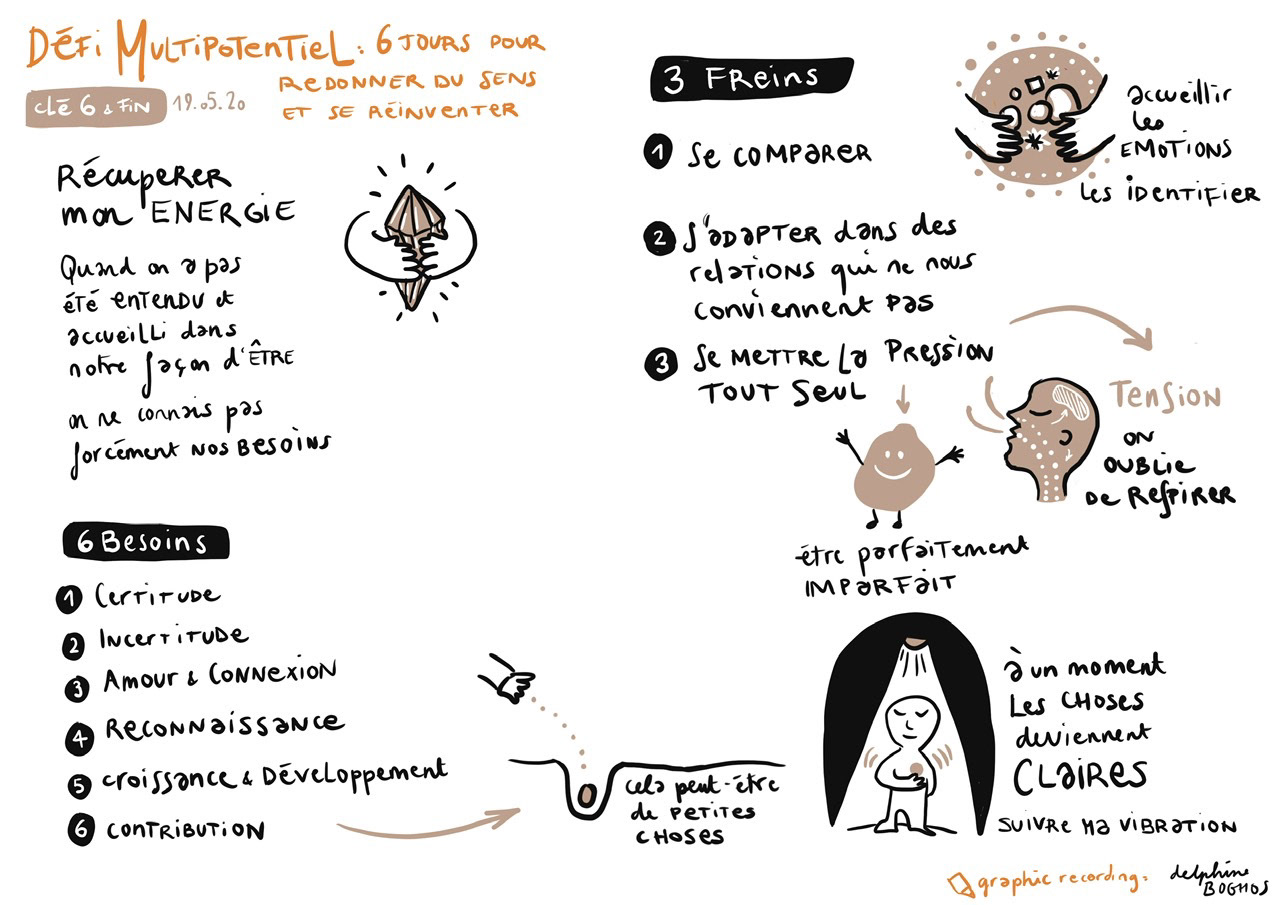 Défi Multipotentiel : 6 jours pour
redonner du sens
et se réinventer
clé 6 & fin 19.05.20
Récuperer
mon ENERGIE
Quand on a pas
été entendu et
accueilli dans
notre façon d'ÊTRE
on ne connais pas
forcément nos besoins
6 Besoins
1 Certitude
2 Incertitude
3 Amour & Connexion
4 Reconnaissance
5 croissance & Développement
6 contribution
cela peut-être
de petites
choses
3 Freins
1 se comparer
2 s'adapter dans des
relations qui ne nous
conviennent pas
3 se mettre la pression
tout seul
accueillir
les
EMOTIONS
les identifier
Tension
on
oublie
de respirer
être parfaitement
IMParfait
à un moment
les choses
deviennent
claires
suivre ma vibration
graphic recording:
delphine
BOGHOS